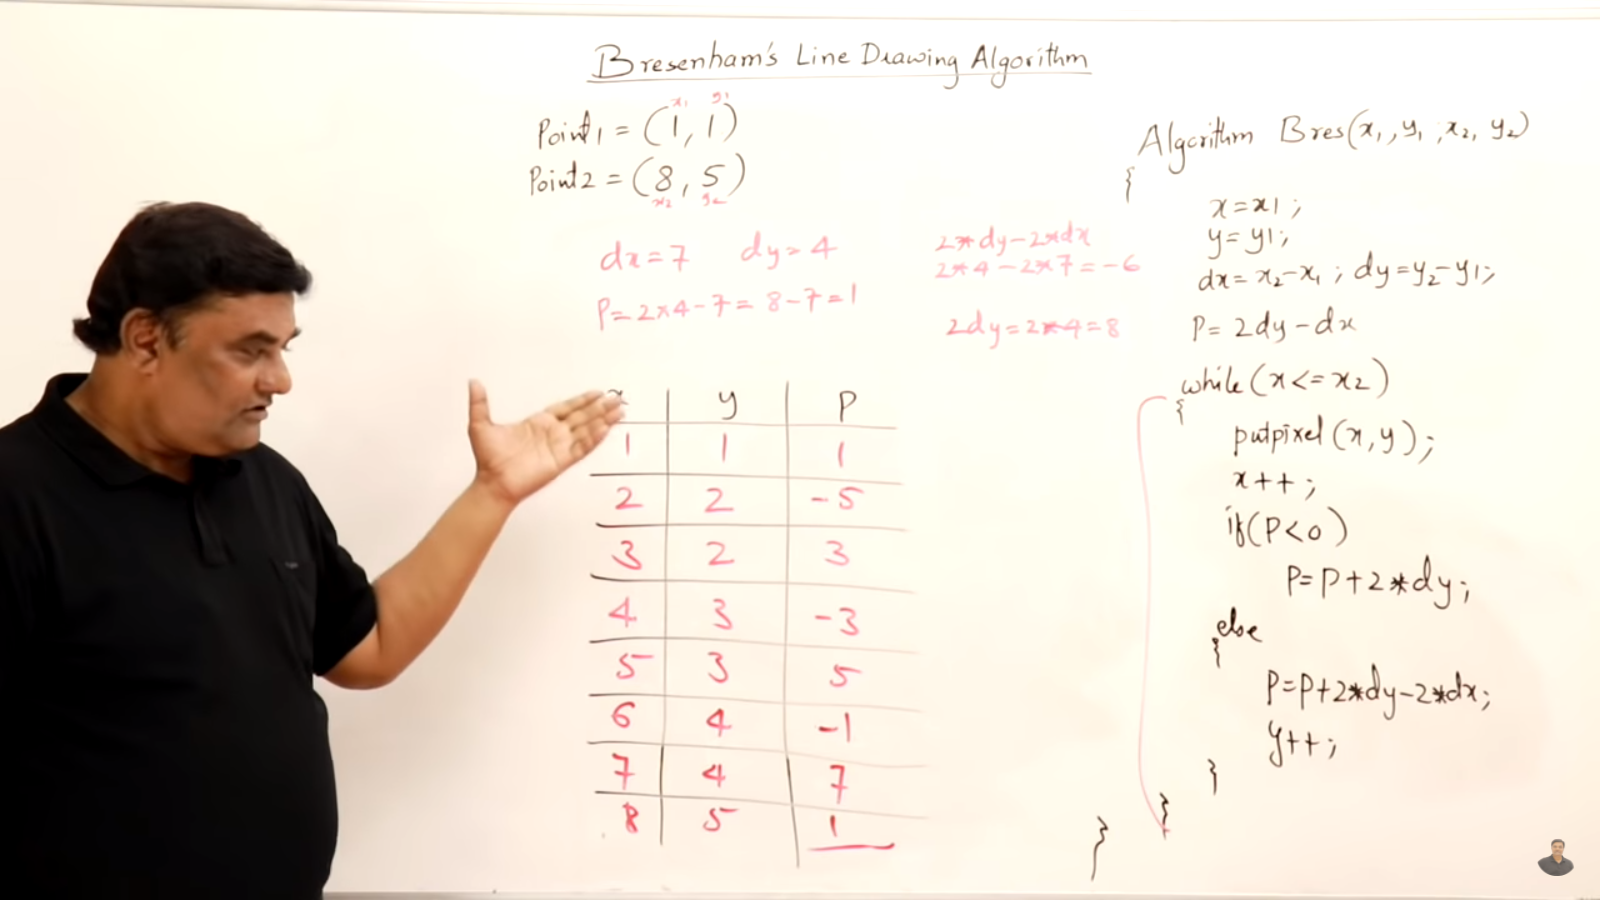 Bresenham's Line Drawing Algorithm
x1 y1
Point1 = (1, 1)
Point2 = (8, 5)
x2 y2
dx=7 dy=4
P=2*4-7= 8-7=1
2*dy-2*dx
2*4-2*7=-6
2dy=2*4=8
x y P
1 1 1
2 2 -5
3 2 3
4 3 -3
5 3 5
6 4 -1
7 4 7
8 5 1
Algorithm Bres(x1, y1, x2, y2)
{
x=x1;
y=y1;
dx=x2-x1; dy=y2-y1;
P=2dy-dx
while(x<=x2)
{
putpixel(x,y);
x++;
if(P<0)
P=P+2*dy;
else
{
P=P+2*dy-2*dx;
y++;
}
}
}